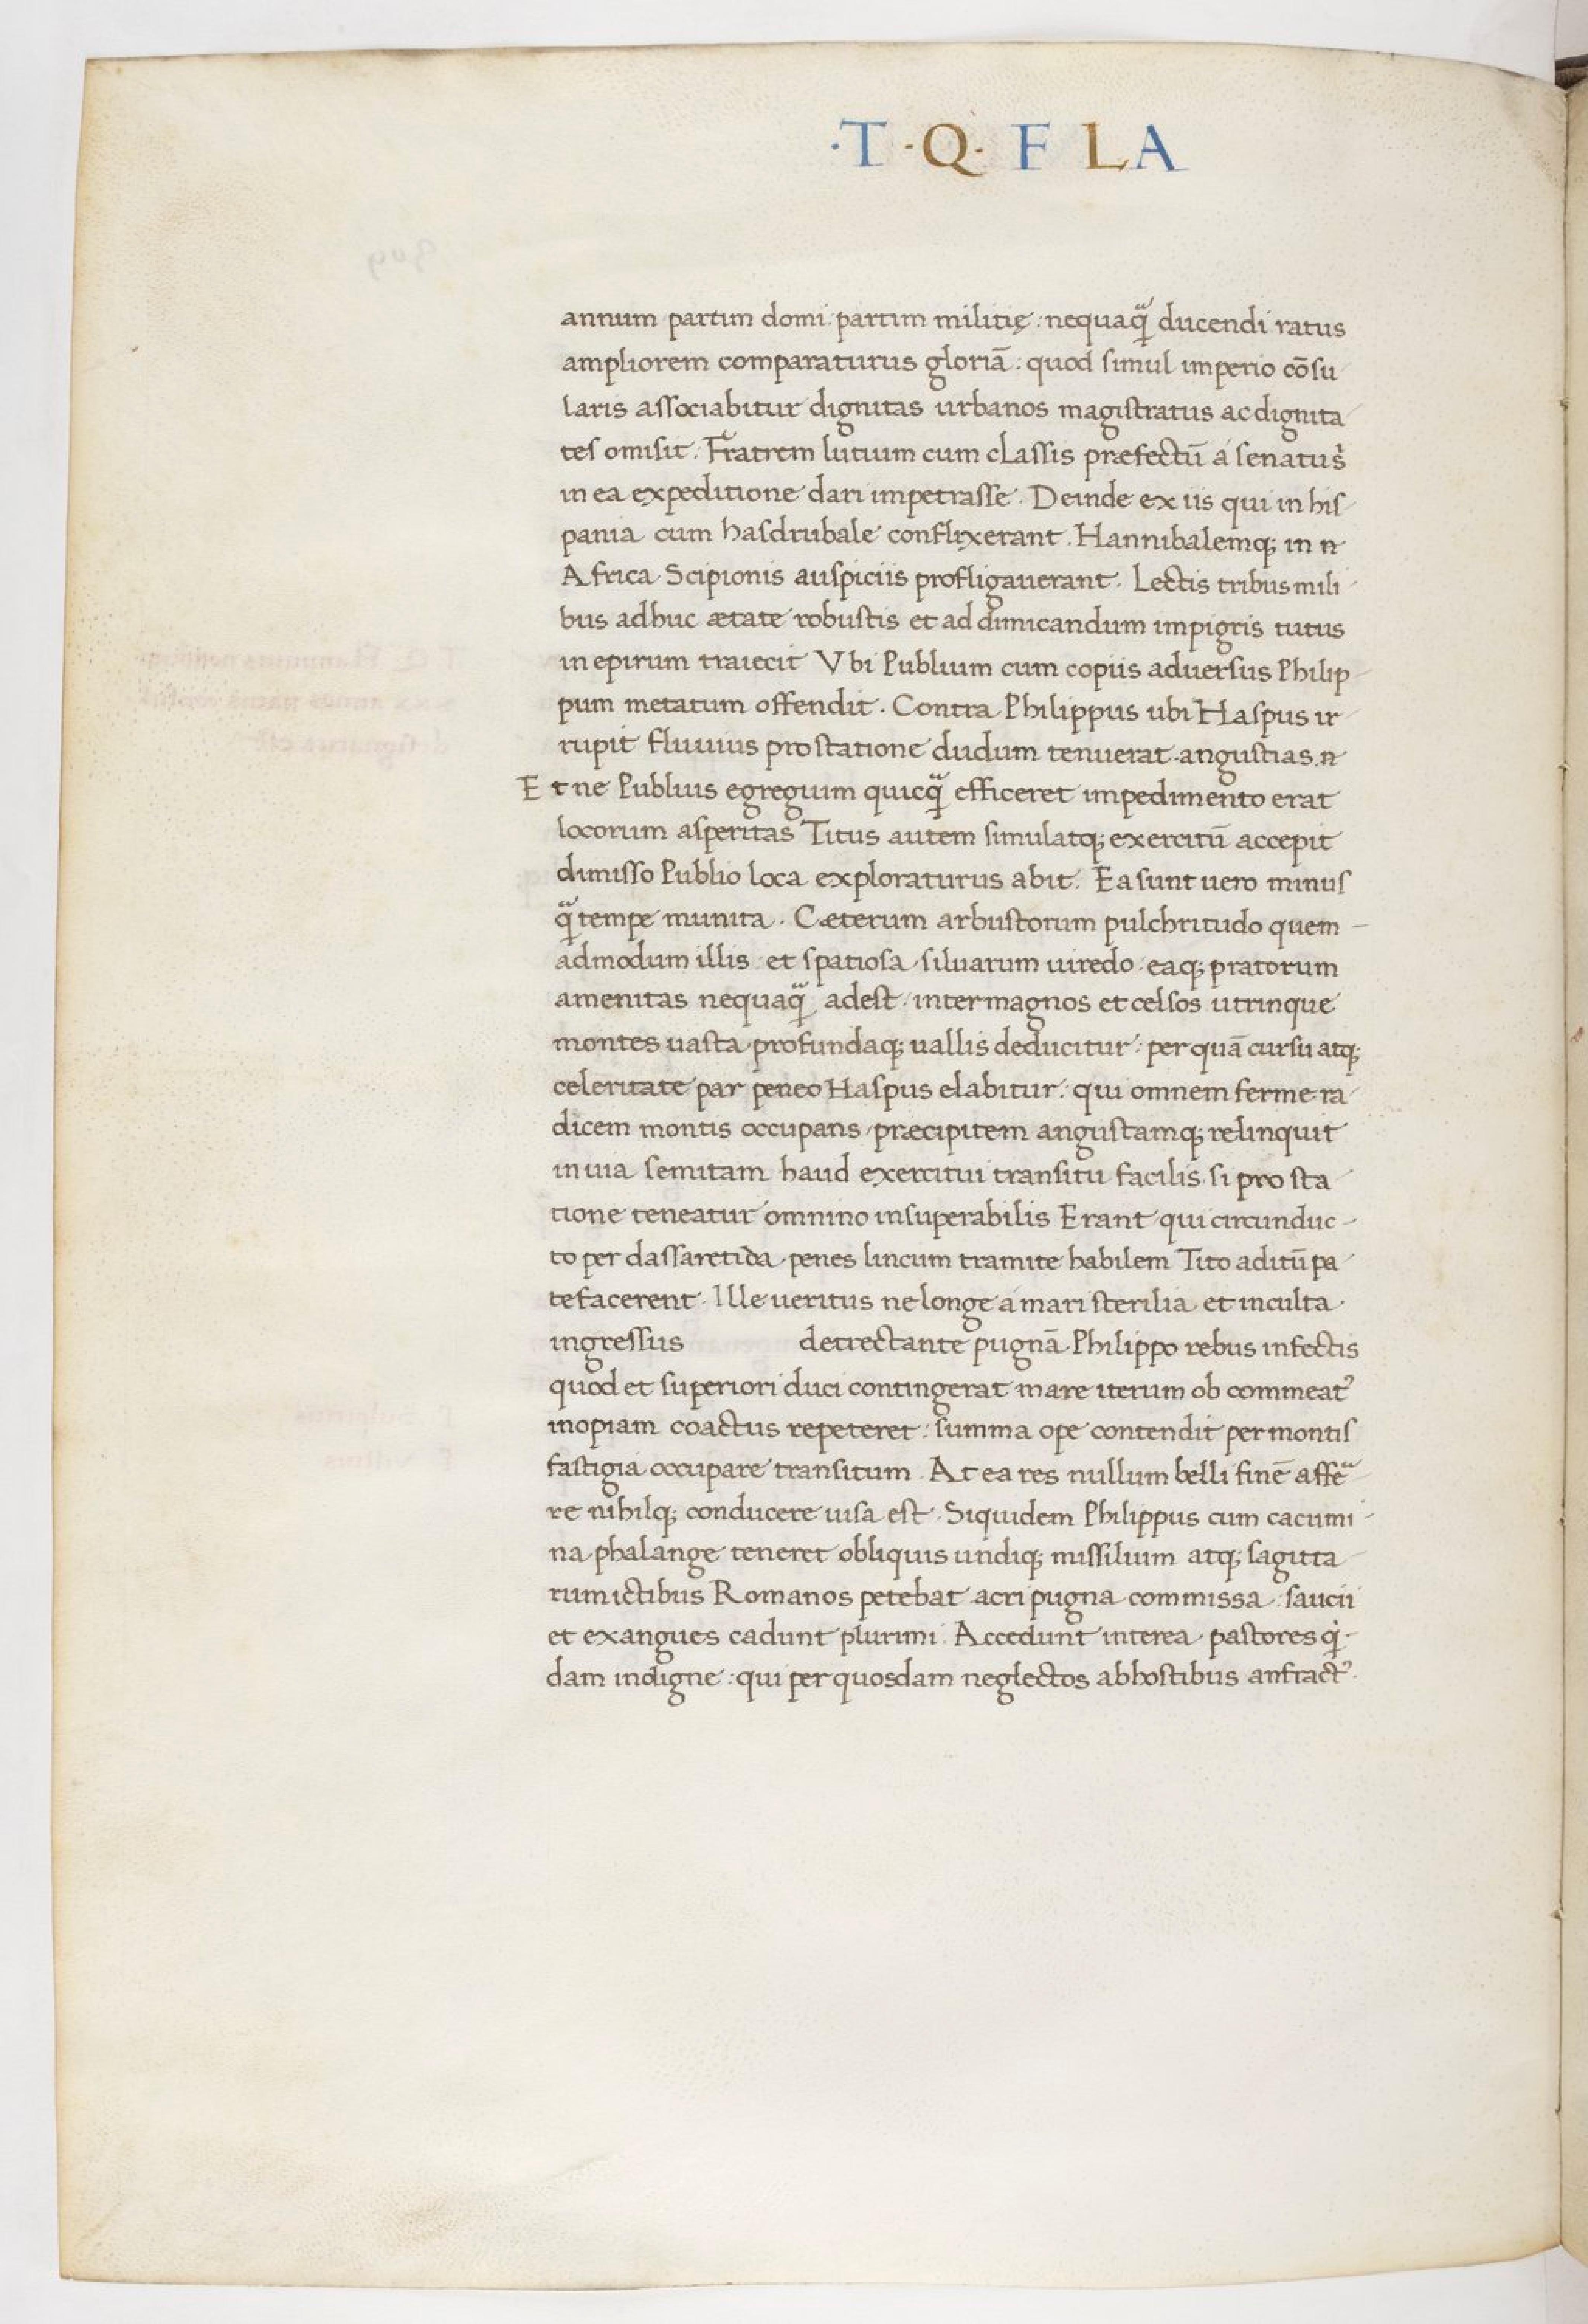 ·T·Q· F LA
annum partim domi: partim militię: nequaq̃ ducendi ratus
ampliorem comparaturus gloriā: quod simul imperio cōsu-
laris associabitur dignitas urbanos magistratus ac dignita-
tes omisit. Fratrem lutium cum classis præfectū á senatus
in ea expeditione dari impetrasse. Deinde ex iis qui in his-
pania cum hasdrubale conflixerant. Hannibalemq; in
Africa Scipionis auspiciis profligauerant. Lectis tribus mili-
bus adhuc ætate robustis et ad dimicandum impigris tutus
in epirum traiecit Vbi Publium cum copiis aduersus Philip-
pum metatum offendit. Contra Philippus ubi Haspus ir-
rupit fluuius pro statione dudum tenuerat angustias
Et ne Publius egregium quicq̃ efficeret impedimento erat
locorum asperitas Titus autem simulatq; exercitū accepit
dimisso Publio loca exploraturus abit. Ea sunt uero minus
q̃ tempe munita. Cæterum arbustorum pulchritudo quem-
admodum illis et spatiosa siluarum uiredo eaq; pratorum
amenitas nequaq̃ adest inter magnos et celsos utrinque
montes uasta profundaq; uallis deducitur: per quā cursu atq;
celeritate par peneo Haspus elabitur: qui omnem ferme ra-
dicem montis occupans præcipitem angustamq; relinquit
in uia semitam haud exercitui transitu facilis si pro sta-
tione teneatur omnino insuperabilis Erant qui circunduc-
to per dassaretida penes lincum tramite habilem Tito aditū pa-
tefacerent. Ille ueritus ne longe á mari sterilia et inculta
ingressus detrectante pugnā Philippo rebus infectis
quod et superiori duci contingerat mare iterum ob commeatꝰ
inopiam coactus repeteret: summa ope contendit per montis
fastigia occupare transitum. At ea res nullum belli finē affer-
re nihilq; conducere uisa est. Siquidem Philippus cum cacumi-
na phalange teneret obliquis undiq; missilium atq; sagitta-
rum ictibus Romanos petebat acri pugna commissa: saucii
et exangues cadunt plurimi. Accedunt interea pastores qͥ-
dam indigne: qui per quosdam neglectos ab hostibus anfractꝰ